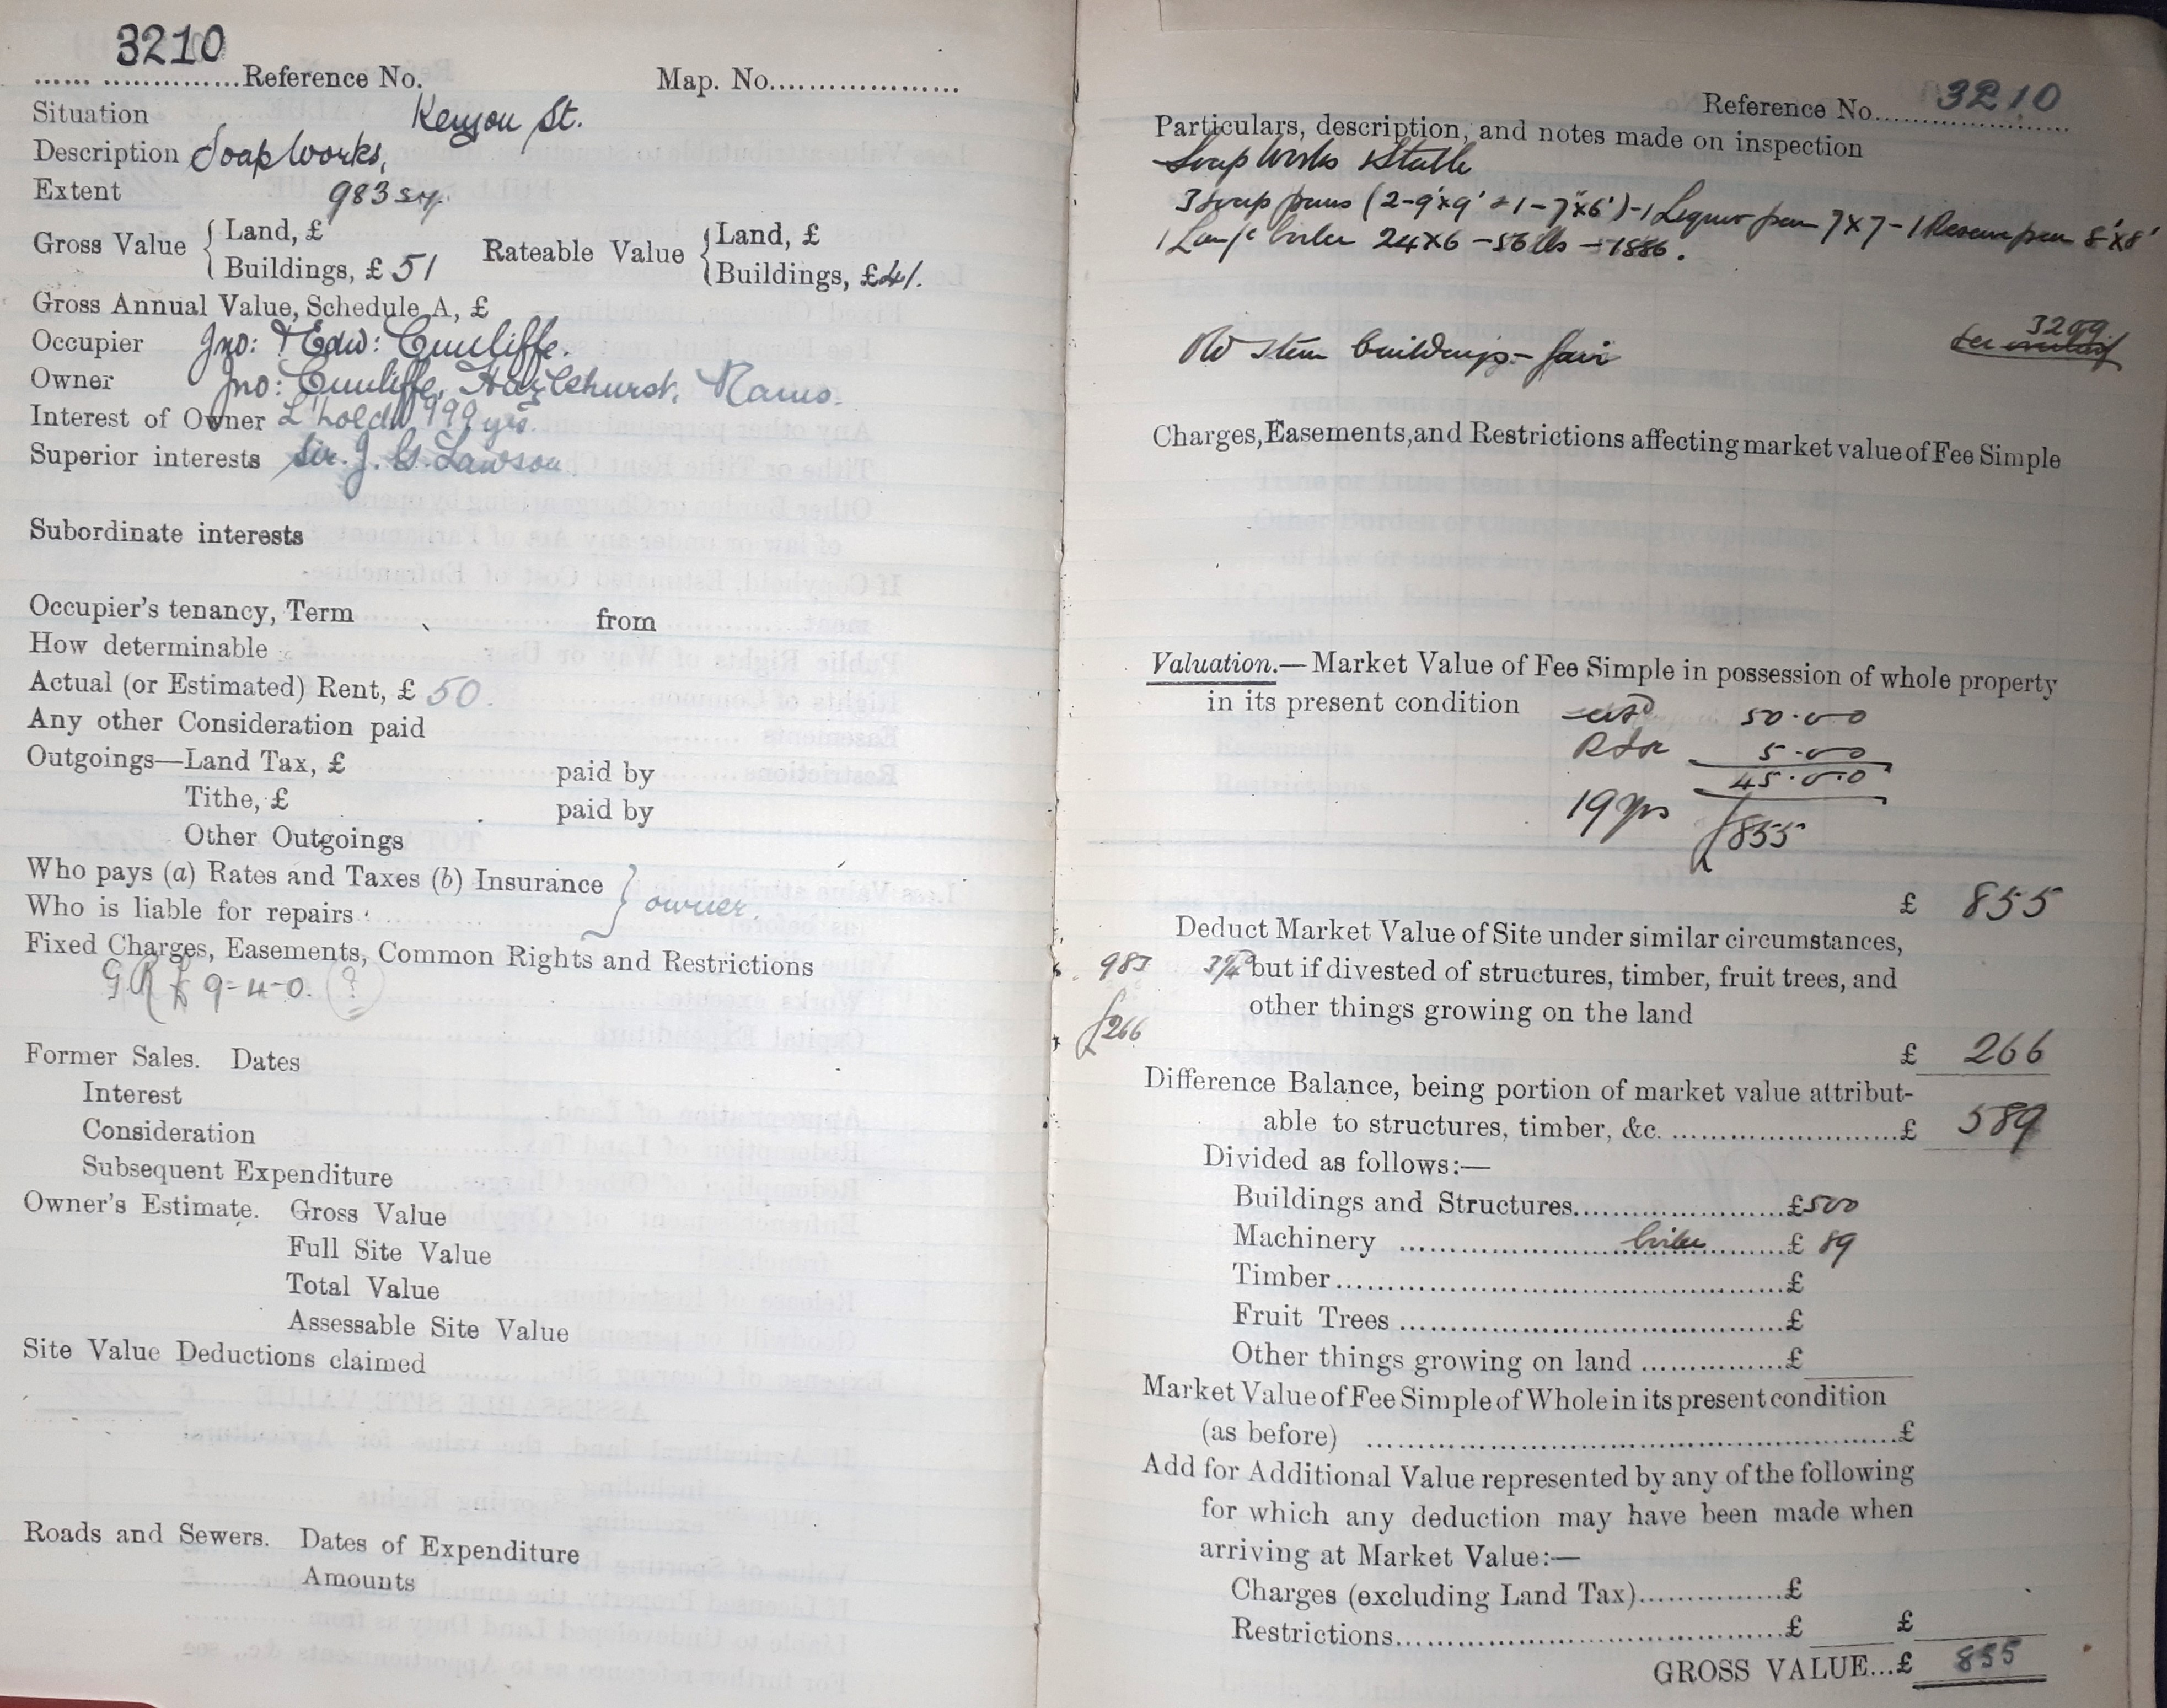 3210
...... ...............Reference No.	Map. No....................
Situation Kenyon St.
Description Soap Works,
Extent 983 s.y.
Gross Value { Land, £	Rateable Value { Land, £
Buildings, £ 51	Buildings, £ 41.
Gross Annual Value, Schedule A, £
Occupier Jno: & Edw: Cunliffe.
Owner Jno: Cunliffe, Hazlehurst, Rams.
Interest of Owner L'hold 999 yrs
Superior interests Sir. J. G. Lawson
Subordinate interests
Occupier's tenancy, Term	from
How determinable
Actual (or Estimated) Rent, £ 50.
Any other Consideration paid
Outgoings—Land Tax, £	paid by
Tithe, £	paid by
Other Outgoings
Who pays (a) Rates and Taxes (b) Insurance } owner.
Who is liable for repairs
Fixed Charges, Easements, Common Rights and Restrictions
G.R £ 9-4-0. (?)
Former Sales. Dates
Interest
Consideration
Subsequent Expenditure
Owner's Estimate. Gross Value
Full Site Value
Total Value
Assessable Site Value
Site Value Deductions claimed
Roads and Sewers. Dates of Expenditure
Amounts
Reference No. 3210
Particulars, description, and notes made on inspection
Soap Works & Stable
3 Soap pans (2-9'x9' & 1-7'x6') - 1 Liquor pan 7x7 - 1 Reserve pan 8'x8'
1 Lan/c boiler 24x6 - 56 lbs - 1886.
Old stone buildings - fair
3209
Charges, Easements, and Restrictions affecting market value of Fee Simple
Valuation.—Market Value of Fee Simple in possession of whole property
in its present condition	50.0.0
5.0.0
45.0.0
19 yrs £855
£ 855
Deduct Market Value of Site under similar circumstances,
983 but if divested of structures, timber, fruit trees, and
other things growing on the land
£266
£ 266
Difference Balance, being portion of market value attribut-
able to structures, timber, &c. ........................£ 589
Divided as follows:—
Buildings and Structures......................£500
Machinery ...............boiler...............£ 89
Timber.............................................£
Fruit Trees .......................................£
Other things growing on land ...............£
Market Value of Fee Simple of Whole in its present condition
(as before) .......................................................£
Add for Additional Value represented by any of the following
for which any deduction may have been made when
arriving at Market Value:—
Charges (excluding Land Tax)...............£
Restrictions.......................................£	£
GROSS VALUE...£ 855